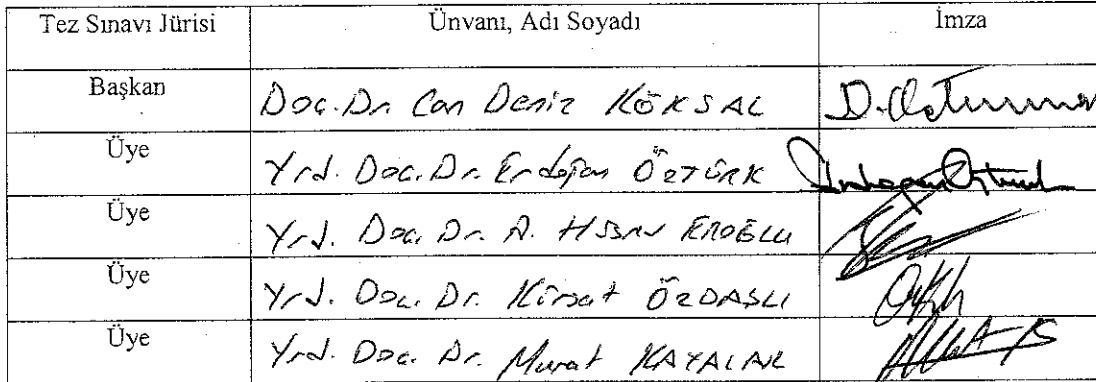 Tez Sınavı Jürisi Ünvanı, Adı Soyadı İmza
Başkan Doç. Dr. Can Deniz KÖKSAL
Üye Yrd. Doç. Dr. Erdoğan ÖZTÜRK
Üye Yrd. Doç. Dr. A. Hüsrev EROĞLU
Üye Yrd. Doç. Dr. Kürşat ÖZDAŞLI
Üye Yrd. Doç. Dr. Murat KAYALAR